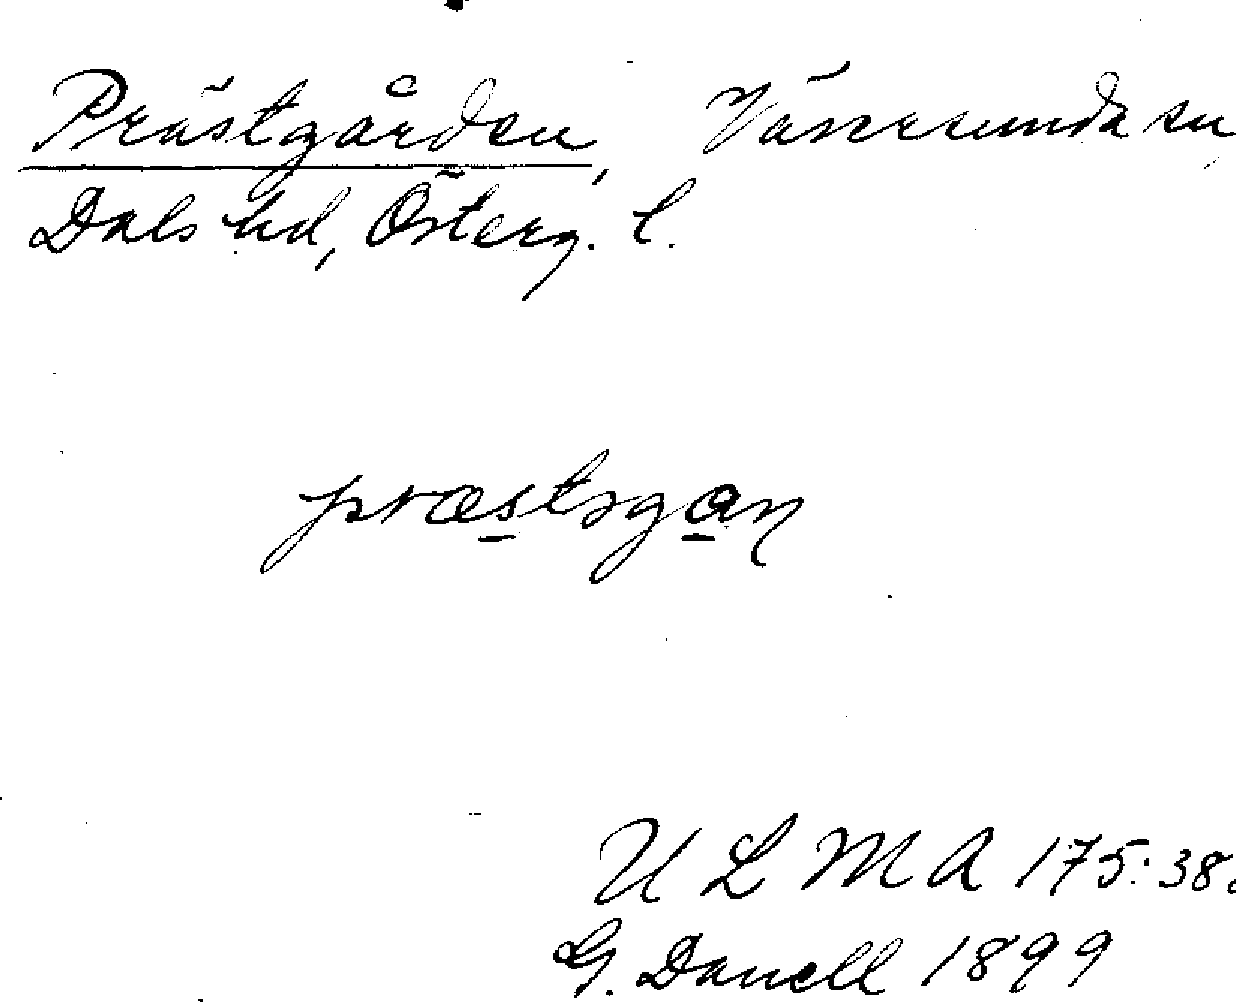 Prästgården, Väversunda sn
Dals hd, Österg. l.
præstsgaɳ
U L M A 175:38.
G. Danell 1899